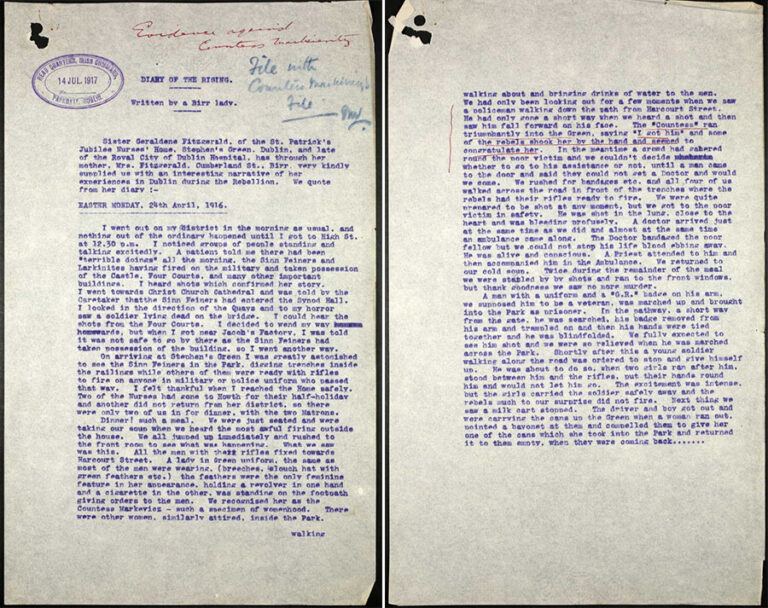 Evidence against
Countess Markievicz
File with
Countess Markievicz's
File
HEAD QUARTERS, IRISH COMMAND,
14 JUL. 1917
PARKGATE, DUBLIN.
DIARY OF THE RISING.
Written by a Birr lady.
Sister Geraldene Fitzgerald, of the St. Patrick's
Jubilee Nurses' Home, Stephen's Green, Dublin, and late
of the Royal City of Dublin Hospital, has through her
mother, Mrs. Fitzgerald, Cumberland St., Birr, very kindly
supplied us with an interesting narrative of her
experiences in Dublin during the Rebellion. We quote
from her diary :-
EASTER MONDAY, 24th April, 1916.
I went out on my district in the morning as usual, and
nothing out of the ordinary happened until I got to High St.
at 12.30 p.m. I noticed groups of people standing and
talking excitedly. A patient told me there had been
"terrible doings" all the morning, the Sinn Feiners and
Larkinites having fired on the military and taken possession
of the Castle, Four Courts, and many other important
buildings. I heard shots which confirmed her story.
I went towards Christ Church Cathedral and was told by the
Caretaker that the Sinn Feiners had entered the Synod Hall.
I looked in the direction of the Quays and to my horror
saw a soldier lying dead on the bridge. I could hear the
shots from the Four Courts. I decided to wend my way
homewards, but when I got near Jacob's Factory, I was told
it was not safe to go by there as the Sinn Feiners had
taken possession of the building, so I went another way.
On arriving at Stephen's Green I was greatly astonished
to see the Sinn Feiners in the Park, digging trenches inside
the railings while others of them were ready with rifles
to fire on anyone in military or police uniform who passed
that way. I felt thankful when I reached the Home safely.
Two of the Nurses had gone to Howth for their half-holiday
and another did not return from her district, so there
were only two of us in for dinner, with the two Matrons.
Dinner! such a meal. We were just seated and were
taking our soup when we heard the most awful firing outside
the house. We all jumped up immediately and rushed to
the front room to see what was happening. What we saw
was this. All the men with their rifles fixed towards
Harcourt Street. A lady in Green uniform, the same as
most of the men were wearing, (breeches, slouch hat with
green feathers etc.) the feathers were the only feminine
feature in her appearance, holding a revolver in one hand
and a cigarette in the other, was standing on the footpath
giving orders to the men. We recognised her as the
Countess Markevicz - such a specimen of womenhood. There
were other women, similarly attired, inside the Park,
walking
walking about and bringing drinks of water to the men.
We had only been looking out for a few moments when we saw
a policeman walking down the path from Harcourt Street.
He had only gone a short way when we heard a shot and then
saw him fall forward on his face. The "Countess" ran
triumphantly into the Green, saying "I got him" and some
of the rebels shook her by the hand and seemed to
congratulate her. In the meantime a crowd had gathered
round the poor victim and we couldn't decide
whether to go to his assistance or not, until a man came
to the door and said they could not get a Doctor and would
we come. We rushed for bandages etc. and all four of us
walked across the road in front of the trenches where the
rebels had their rifles ready to fire. We were quite
prepared to be shot at any moment, but we got to the poor
victim in safety. He was shot in the lung, close to the
heart and was bleeding profusely. A doctor arrived just
at the same time as we did and almost at the same time
an ambulance came along. The Doctor bandaged the poor
fellow but we could not stop his life blood ebbing away.
He was alive and conscious. A Priest attended to him and
then accompanied him in the Ambulance. We returned to
our cold soup. Twice during the remainder of the meal
we were startled by shots and ran to the front windows,
but thank goodness we saw no more murder.
A man with a uniform and a "G.R." badge on his arm,
we supposed him to be a veteran, was marched up and brought
into the Park as prisoner. In the pathway, a short way
from the gate, he was searched, his badge removed from
his arm and trampled on and then his hands were tied
together and he was blindfolded. We fully expected to
see him shot and we were so relieved when he was marched
across the Park. Shortly after this a young soldier
walking along the road was ordered to stop and give himself
up. He was about to do so, when two girls ran after him,
stood between him and the rifles, put their hands round
him and would not let him go. The excitement was intense,
but the girls carried the soldier safely away and the
rebels much to our surprise did not fire. Next thing we
saw a milk cart stopped. The driver and boy got out and
were carrying the cans up the Green when a woman ran out,
pointed a bayonet at them and compelled them to give her
one of the cans which she took into the Park and returned
it to them empty, when they were coming back.......